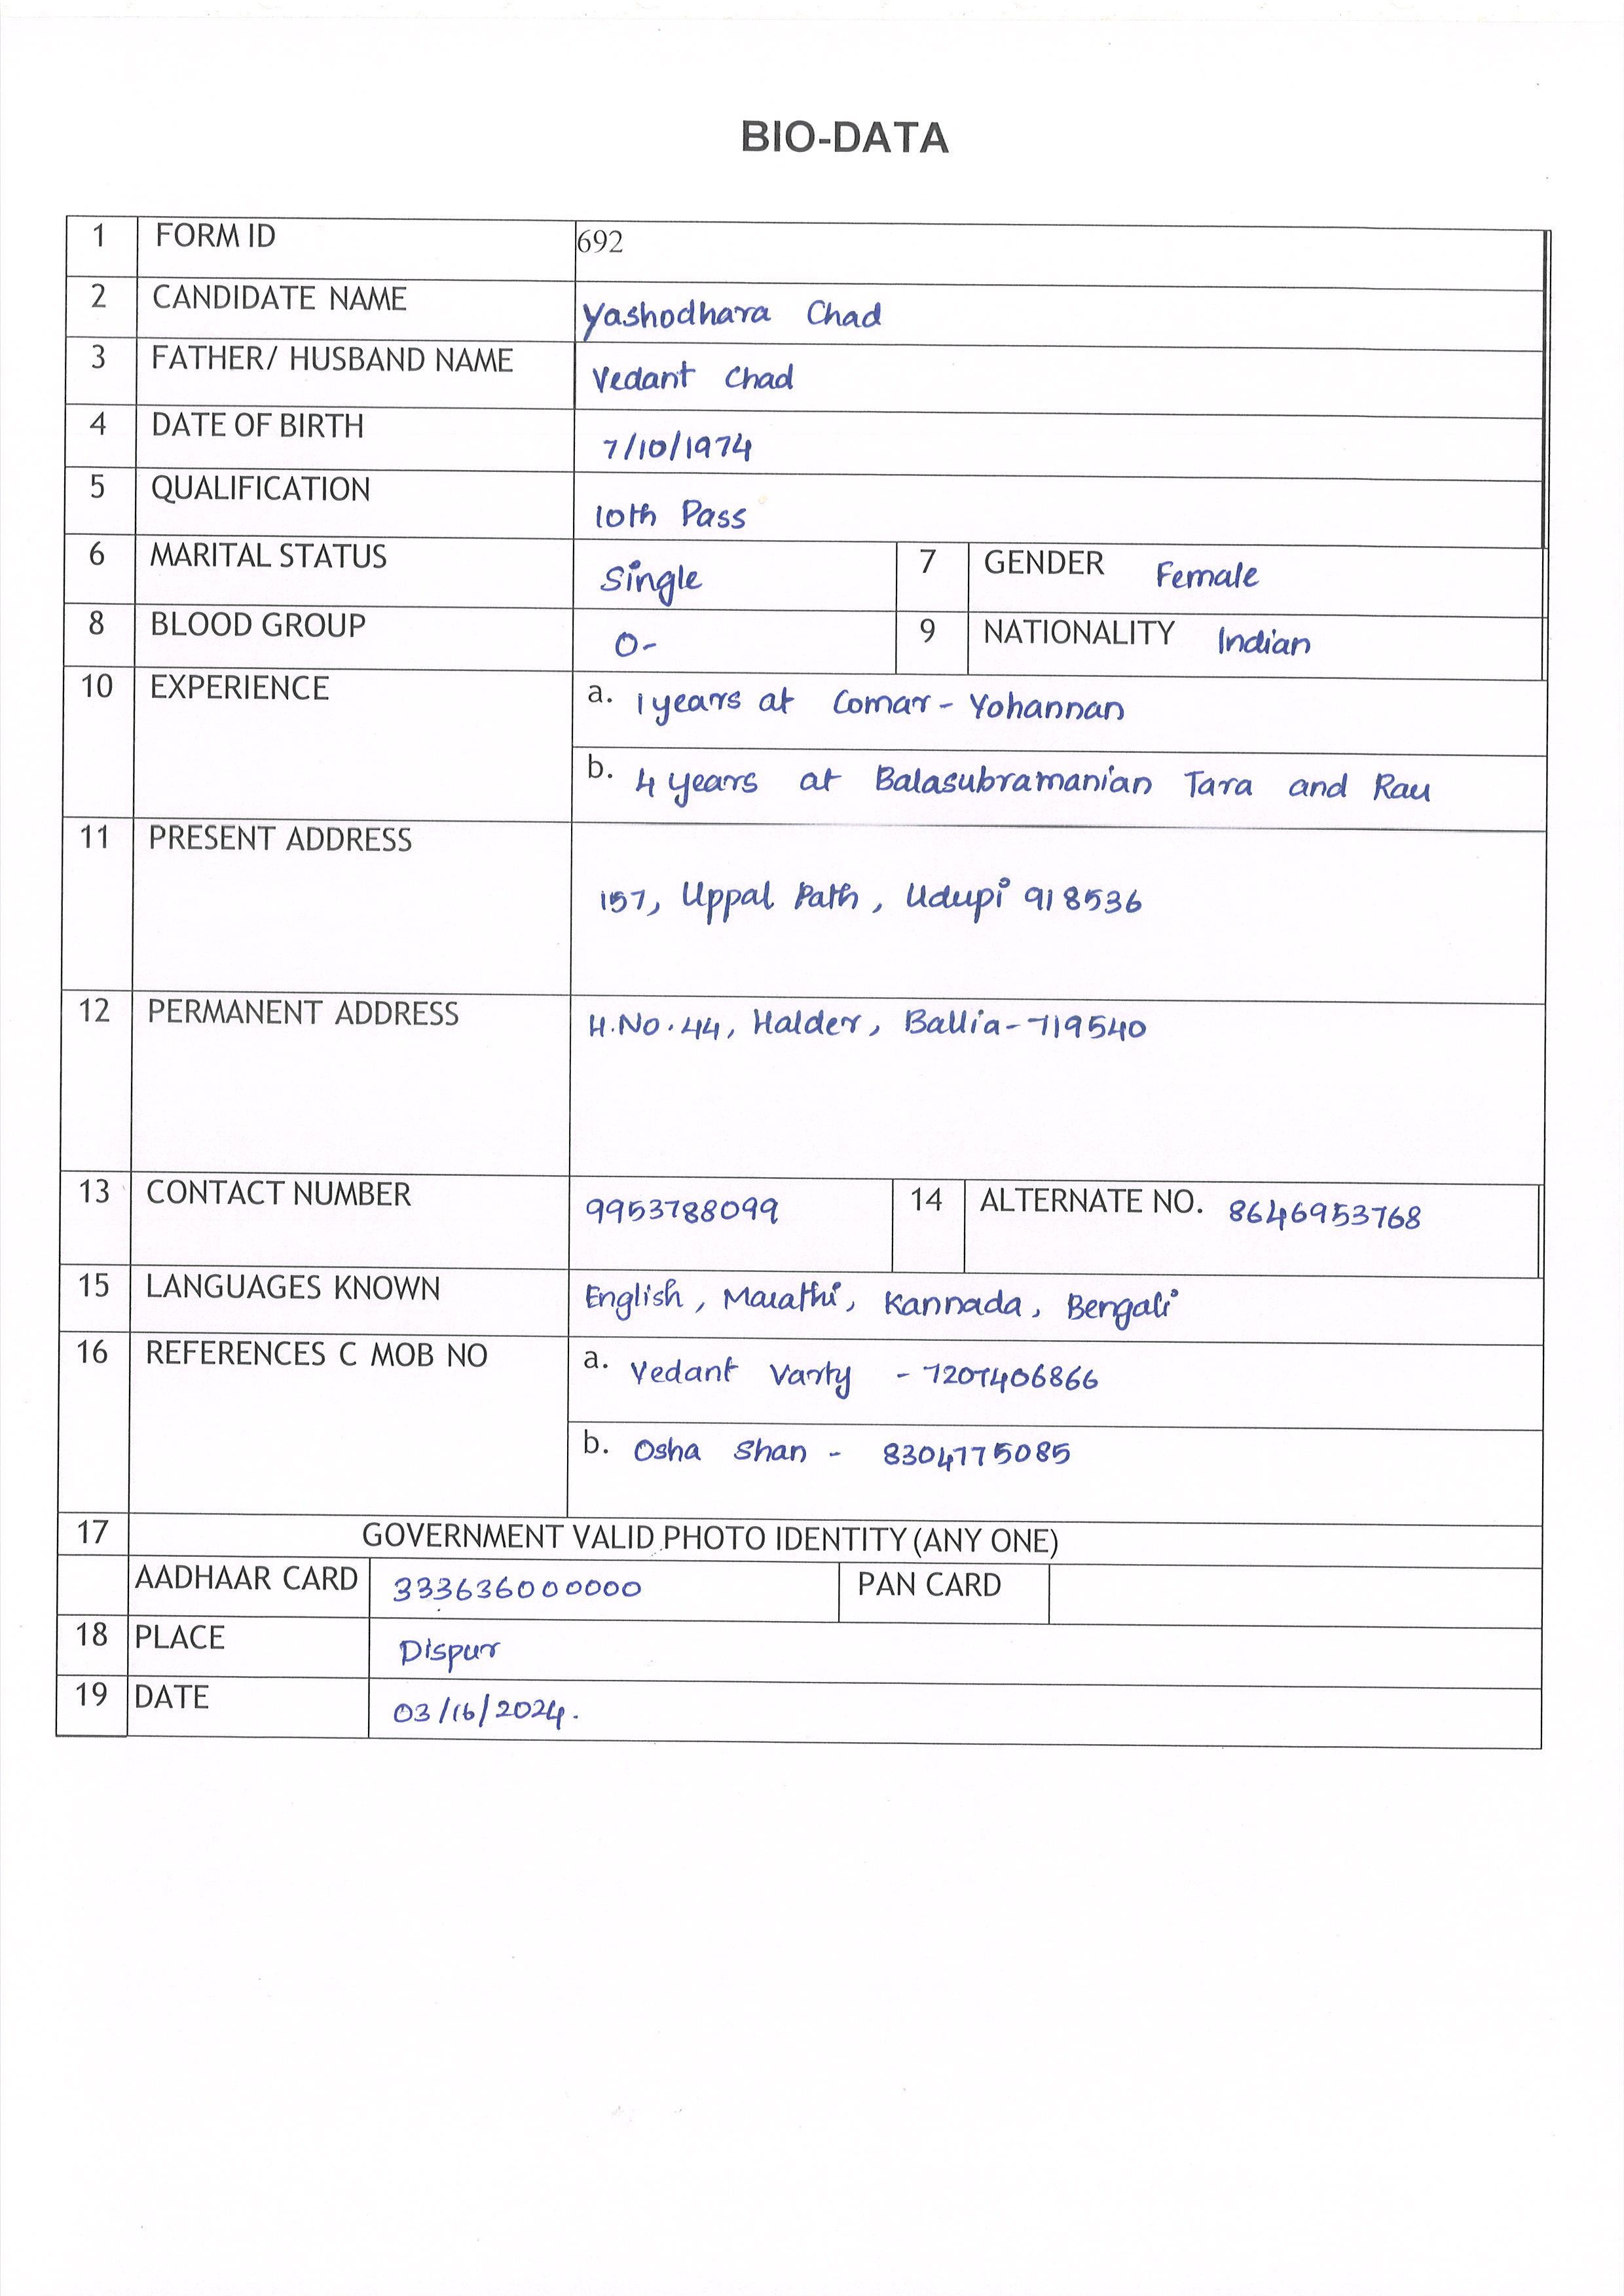 BIO-DATA
1 FORM ID 692
2 CANDIDATE NAME Yashodhara Chad
3 FATHER/ HUSBAND NAME Vedant Chad
4 DATE OF BIRTH 7/10/1974
5 QUALIFICATION 10th Pass
6 MARITAL STATUS Single 7 GENDER Female
8 BLOOD GROUP O- 9 NATIONALITY Indian
10 EXPERIENCE a. 1 years at Comar - Yohannan
b. 4 years at Balasubramanian Tara and Rau
11 PRESENT ADDRESS
157, Uppal Path, Udupi 918536
12 PERMANENT ADDRESS H.No. 44, Halder, Ballia-719540
13 CONTACT NUMBER 9953788099 14 ALTERNATE NO. 8646953768
15 LANGUAGES KNOWN English, Marathi, Kannada, Bengali
16 REFERENCES C MOB NO a. Vedant Varty - 7207406866
b. Osha Shan - 8304775085
17 GOVERNMENT VALID PHOTO IDENTITY (ANY ONE)
AADHAAR CARD 333636000000 PAN CARD
18 PLACE Dispur
19 DATE 03/16/2024.